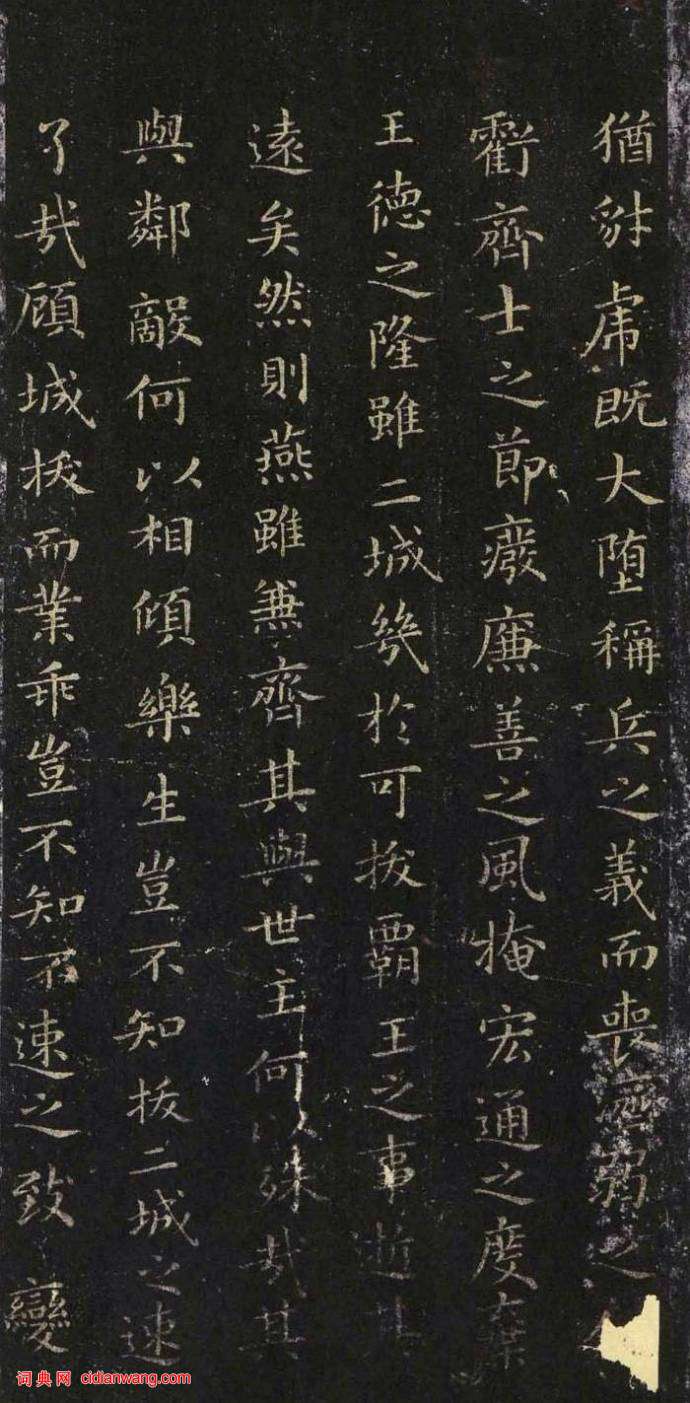 猶豺虎既大堕稱兵之義而喪濟弱之
虧齊士之節廢廉善之風掩宏通之度棄
王德之隆雖二城幾於可拔霸王之事逝其
遠矣然則燕雖兼齊其與世主何以殊哉其
與鄰敵何以相傾樂生豈不知拔二城之速
了哉顧城拔而業乖豈不知不速之致變
词典网 cidianwang.com